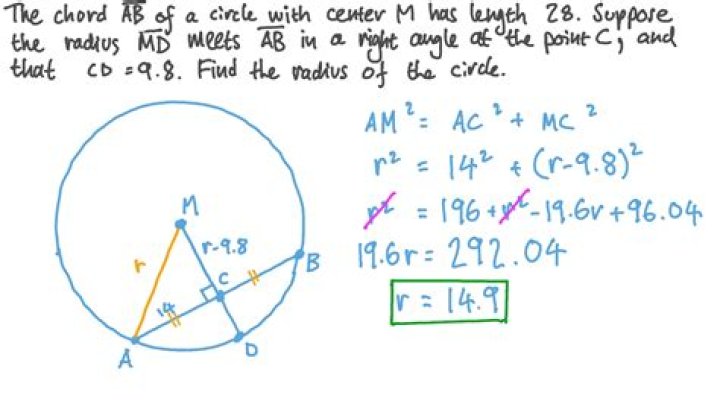 The chord AB of a circle with center M has length 28. Suppose
the radius MD meets AB in a right angle at the point C, and
that CD = 9.8. Find the radius of the circle.
AM² = AC² + MC²
r² = 14² + (r-9.8)²
r² = 196 + r² - 19.6r + 96.04
19.6r = 292.04
r = 14.9
M
r
r-9.8
B
C
14
A
D